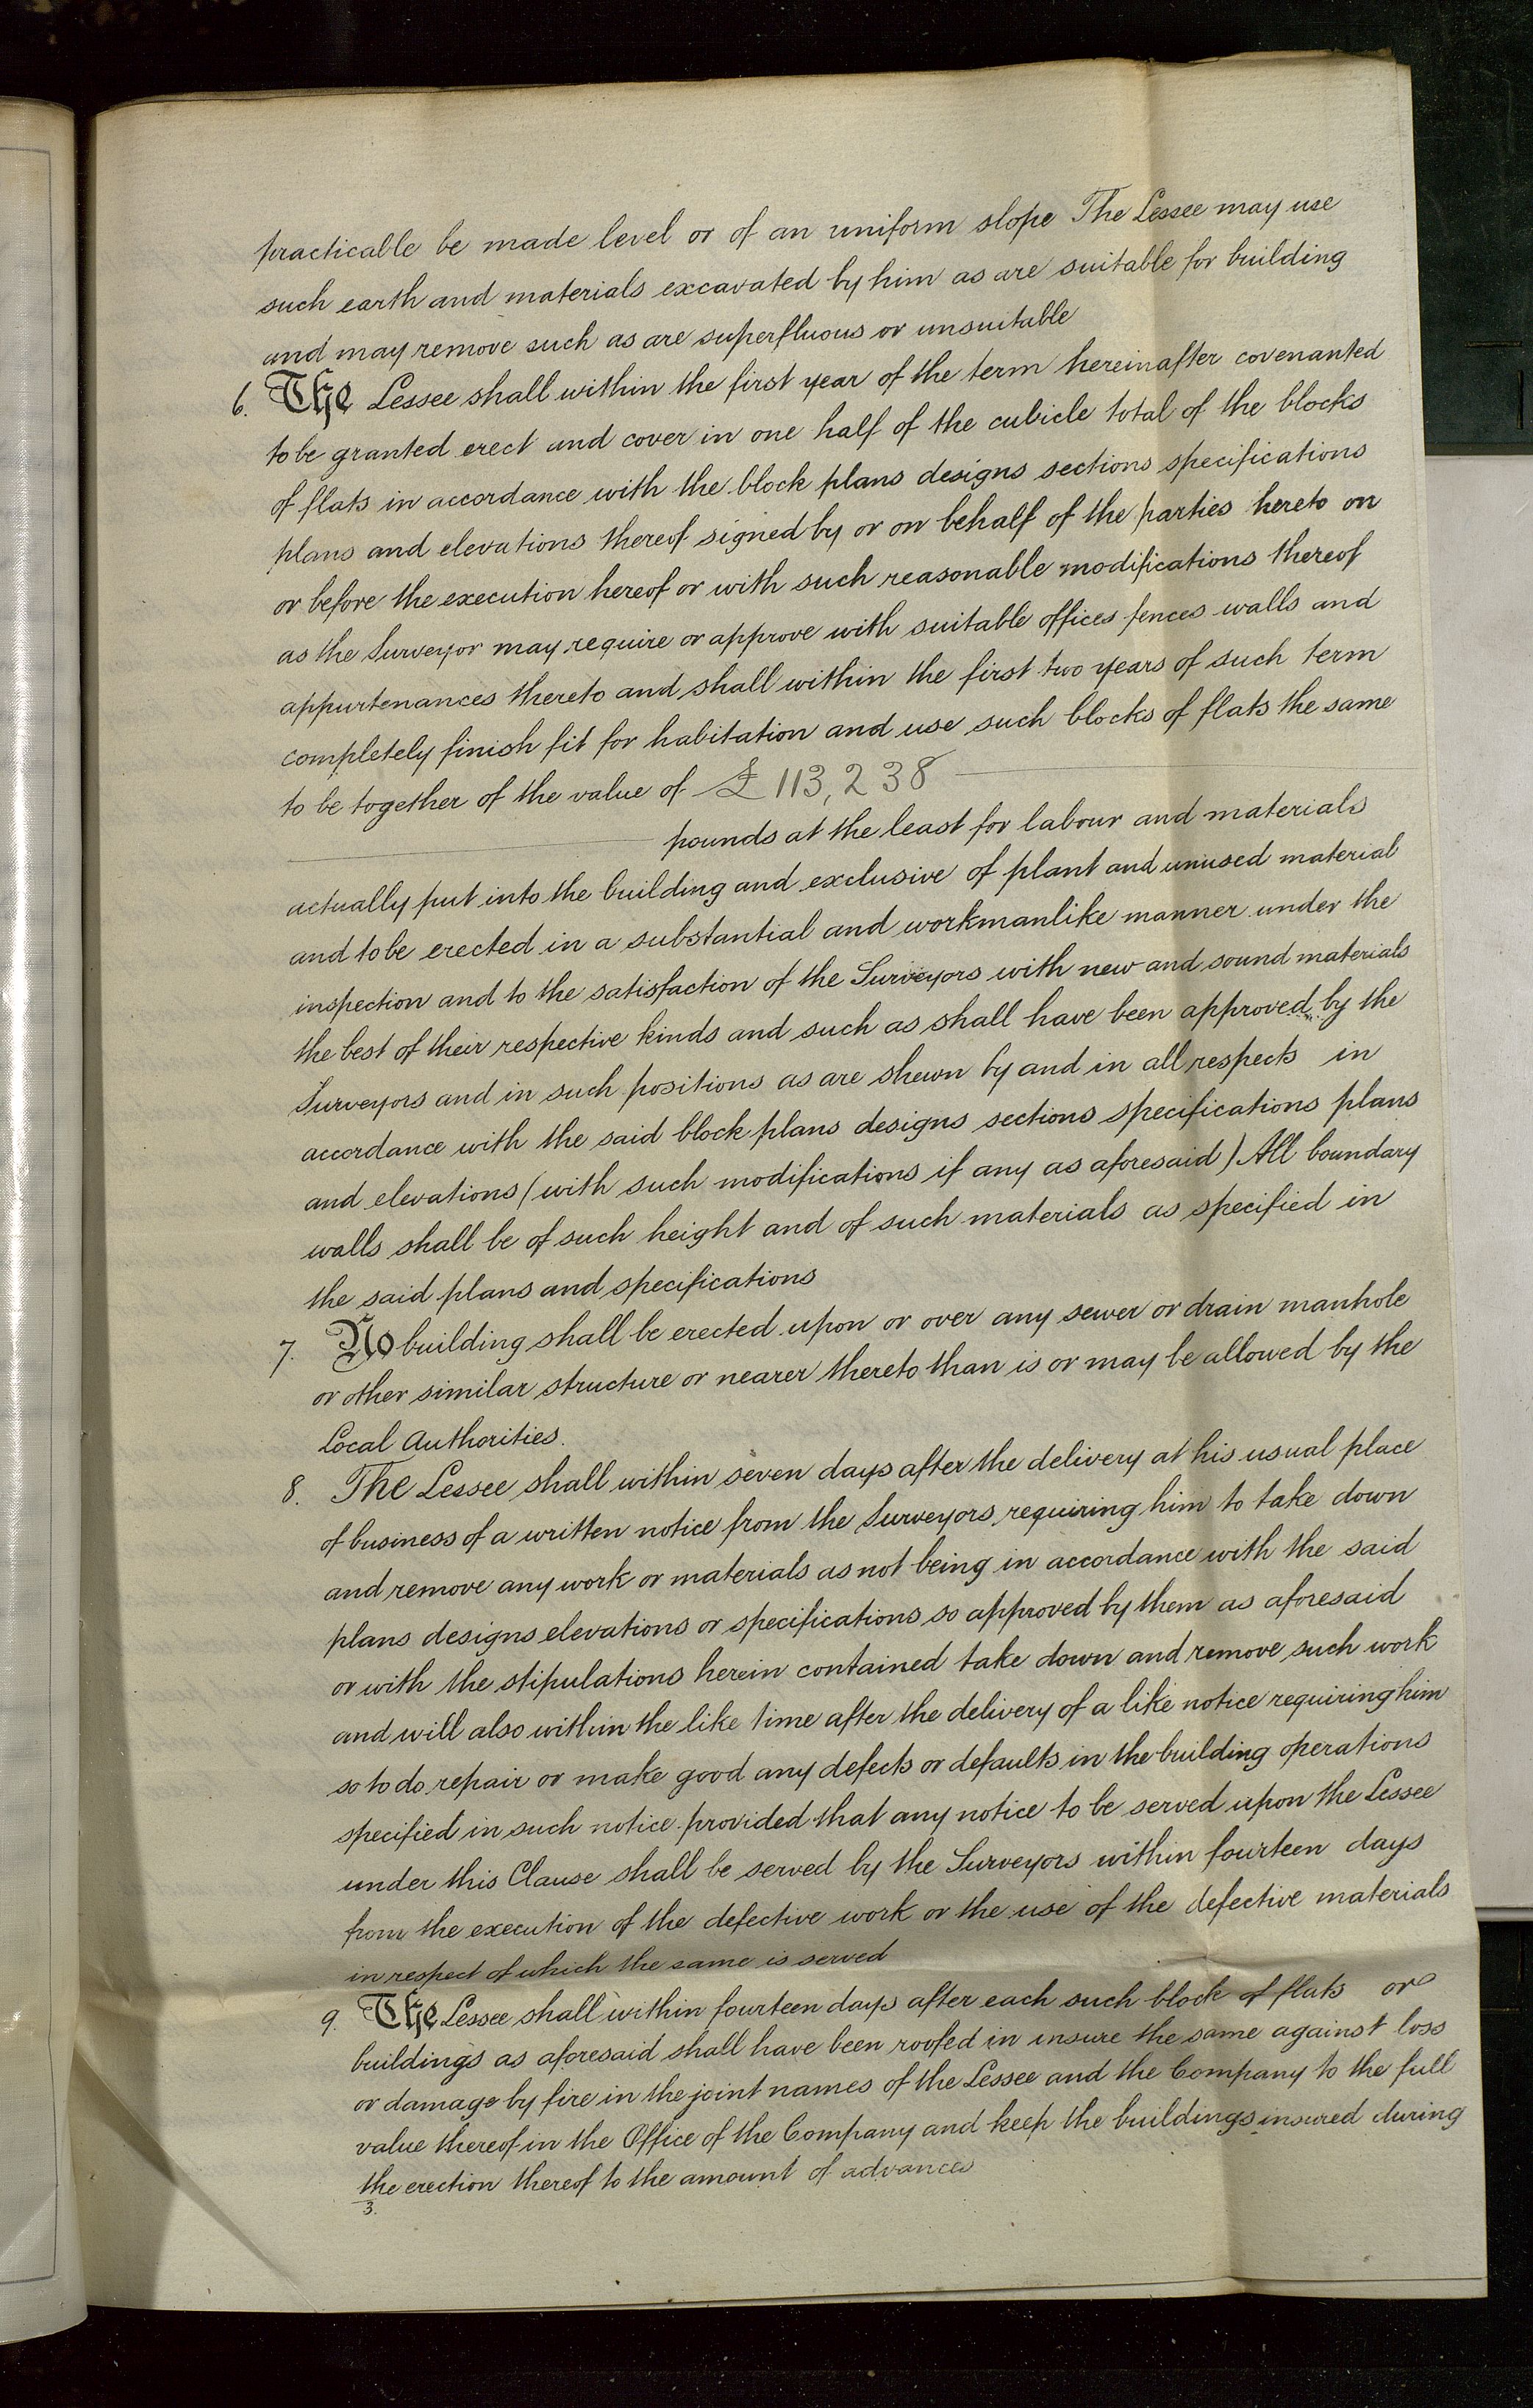 practicable be made level or of an uniform slope The Lessee may use
such earth and materials excavated by him as are suitable for building
and may remove such as are superfluous or unsuitable
6. The Lessee shall within the first year of the term hereinafter covenanted
to be granted erect and cover in one half of the cubicle total of the blocks
of flats in accordance with the block plans designs sections specifications
plans and elevations thereof signed by or on behalf of the parties hereto on
or before the execution hereof or with such reasonable modifications thereof
as the Surveyor may require or approve with suitable offices fences walls and
appurtenances thereto and shall within the first two years of such term
completely finish fit for habitation and use such blocks of flats the same
to be together of the value of £113,238
pounds at the least for labour and materials
actually put into the building and exclusive of plant and unused material
and to be erected in a substantial and workmanlike manner under the
inspection and to the satisfaction of the Surveyors with new and sound materials
the best of their respective kinds and such as shall have been approved by the
Surveyors and in such positions as are shewn by and in all respects in
accordance with the said block plans designs sections specifications plans
and elevations (with such modifications if any as aforesaid) All boundary
walls shall be of such height and of such materials as specified in
the said plans and specifications
7. No building shall be erected upon or over any sewer or drain manhole
or other similar structure or nearer thereto than is or may be allowed by the
Local Authorities.
8. The Lessee shall within seven days after the delivery at his usual place
of business of a written notice from the Surveyors requiring him to take down
and remove any work or materials as not being in accordance with the said
plans designs elevations or specifications so approved by them as aforesaid
or with the stipulations herein contained take down and remove such work
and will also within the like time after the delivery of a like notice requiring him
so to do repair or make good any defects or defaults in the building operations
specified in such notice provided that any notice to be served upon the Lessee
under this Clause shall be served by the Surveyors within fourteen days
from the execution of the defective work or the use of the defective materials
in respect of which the same is served
9. The Lessee shall within fourteen days after each such block of flats or
buildings as aforesaid shall have been roofed in insure the same against loss
or damage by fire in the joint names of the Lessee and the Company to the full
value thereof in the Office of the Company and keep the buildings insured during
the erection thereof to the amount of advances
3.